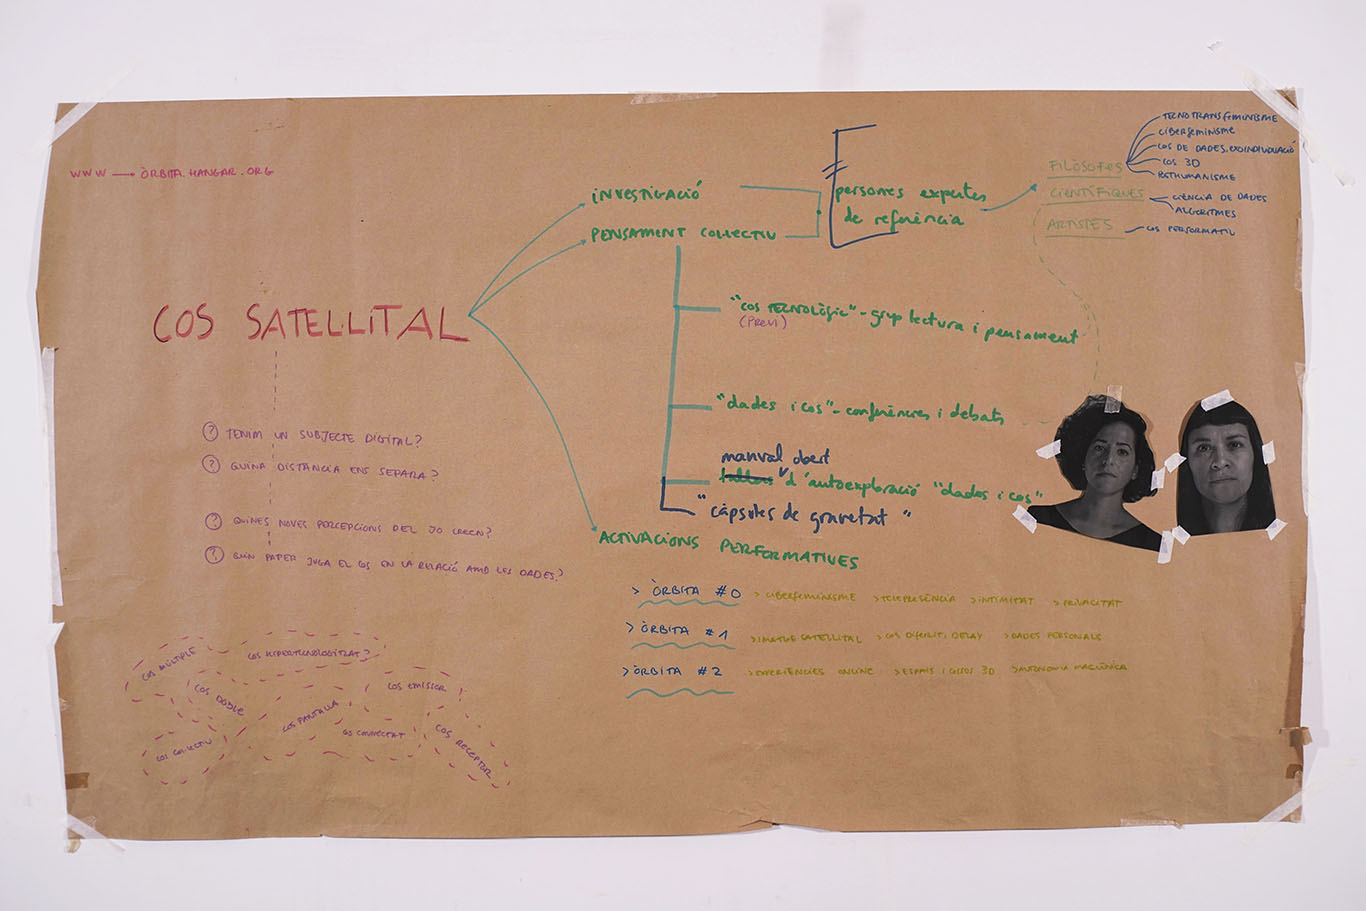 WWW → ÒRBITA.HANGAR.ORG
COS SATEL·LITAL
? TENIM UN SUBJECTE DIGITAL?
? QUINA DISTÀNCIA ENS SEPARA?
? QUINES NOVES PERCEPCIONS DEL JO CREEN?
? QUIN PAPER JUGA EL COS EN LA RELACIÓ AMB LES DADES?
COS MÚLTIPLE
COS HIPERTECNOLOGITZAT?
COS DOBLE
COS EMISSOR
COS PANTALLA
COS COL·LECTIU
COS CONNECTAT
COS RECEPTOR
INVESTIGACIÓ
PENSAMENT COL·LECTIU
persones expertes
de referència
FILÒSOFES
TECNOTRANSFEMINISME
CIBERFEMINISME
COS DE DADES.
COS 3D
POSTHUMANISME
CIENTÍFIQUES
CIÈNCIA DE DADES
ALGORITMES
ARTISTES
COS PERFORMATIU
"COS TECNOLÒGIC" - grup lectura i pensament
(PREVI)
"dades i cos" - conferències i debats
manual obert
d'autoexploració "dades i cos"
"càpsules de gravetat"
ACTIVACIONS PERFORMATIVES
> ÒRBITA #0 > CIBERFEMINISME > TELEPRESÈNCIA > INTIMITAT > PRIVACITAT
> ÒRBITA #1 > IMATGE SATEL·LITAL > COS DIFERIT I DELAY > DADES PERSONALS
> ÒRBITA #2 > EXPERIÈNCIES ONLINE > ESPAIS I COSSOS 3D > AUTONOMIA MAQUÍNICA